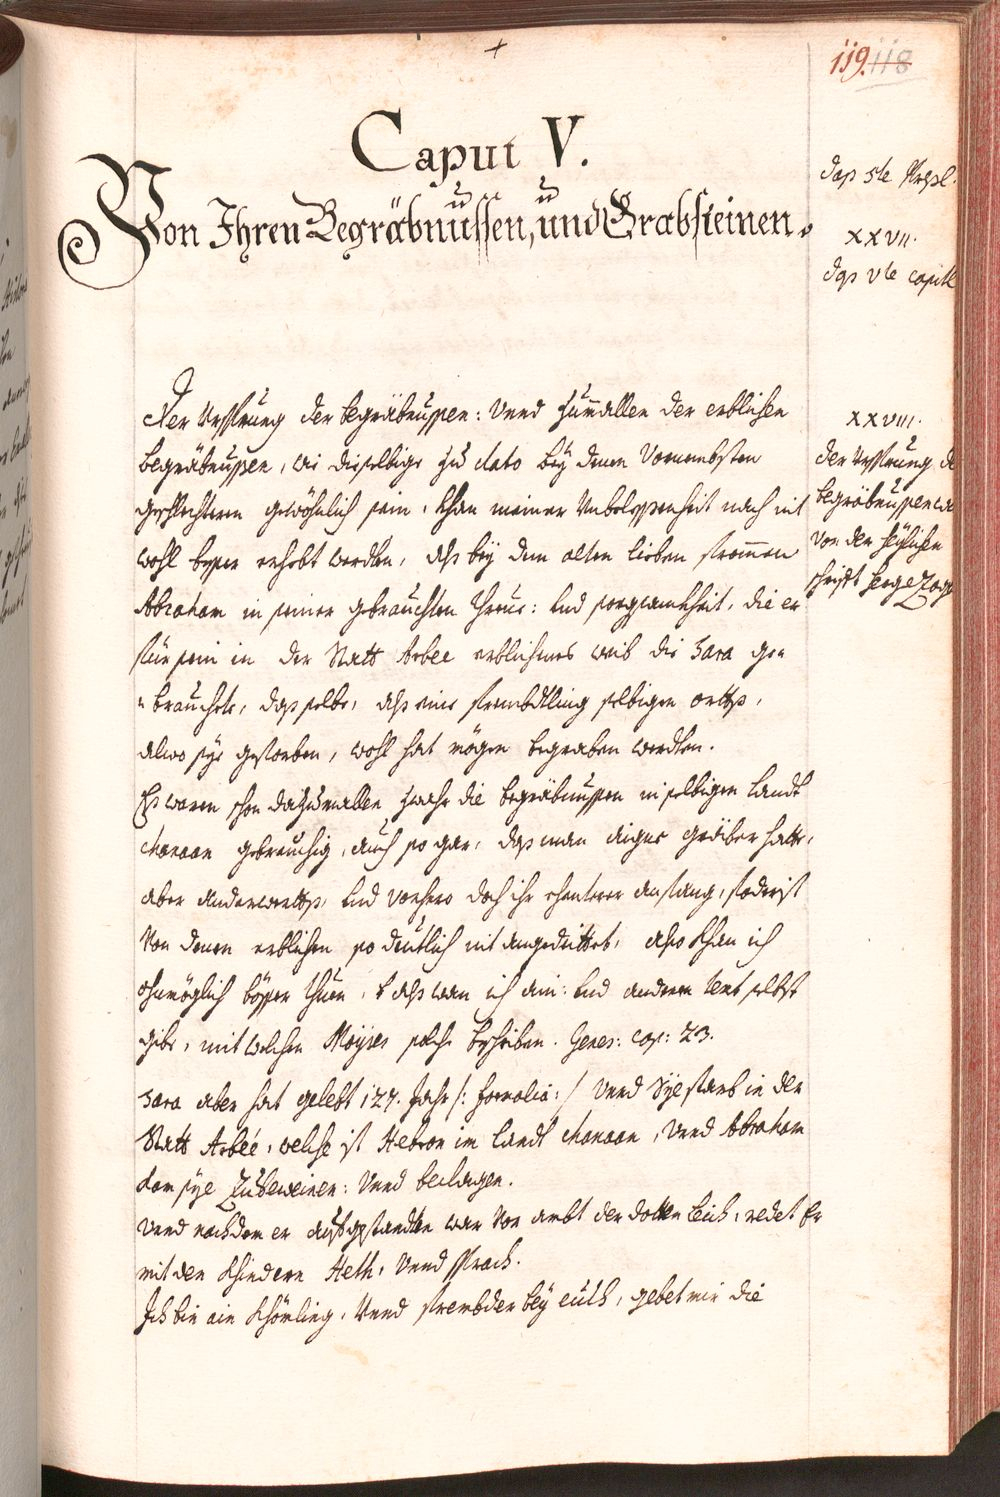 119. 118
Caput V.
Von Ihren Begräbnussen, und Grabsteinen.
das 5te Capl.
XXVII.
das Vte capitl
Der Ursprung der begräbnussen: Unnd zumallen der erblichen
begräbnussen, wie dieselbige zue dato bey denen Vornembsten
geschlechteren gewöhnlich sein, khan meiner Unbelessenheit nach nit
wohl besser erhebt werden, alß bey dem alten lieben frommen
Abraham in seiner gebrauchten threue: und sorgsambkheit, die er
für sein in der Statt Arbee erblichenes weib die Sara ge=
=brauchete, das selbe, alß eine frembdtling selbigen orths,
alwo sye gestorben, wohl hat mögen begraben werden.
Es waren schon dazumallen zwahr die begräbnussen in selbigen Landt
Chanaan gebreuchig, auch so gar, das man aigne gräber hatte,
aber anderwerths, und vorhero doch ihr anfang, foderist
Von denen erblichen so deutlich nit angedeittet, also khan ich
ohnmöglich bösser thuen, alß wan ich ain: und anderen text selbst
gibe, mit welchen Moyses solche beschriben. Genes: cap: 23.
Sara aber hat gelebt 127. Jahr /: formalia: / Unnd Sye starb in der
Statt Arbée, welche ist Hebron im Landt Chanaan, Unnd Abraham
kam sye Zubeweinen: Unnd beclagen.
Unnd nachdem er aufgestandten war Von ambt der dotten Leich, redet Er
mit den Khindern Heth, Unnd sprach.
Ich bin ein Khömling, Unnd frembder bey euch, gebet mir die
XXVIII.
Der Ursprung de
begräbnussen
Von der heylichen
schrifft